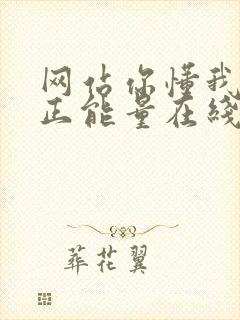 网站你懂我
正能量在线
葬花翼